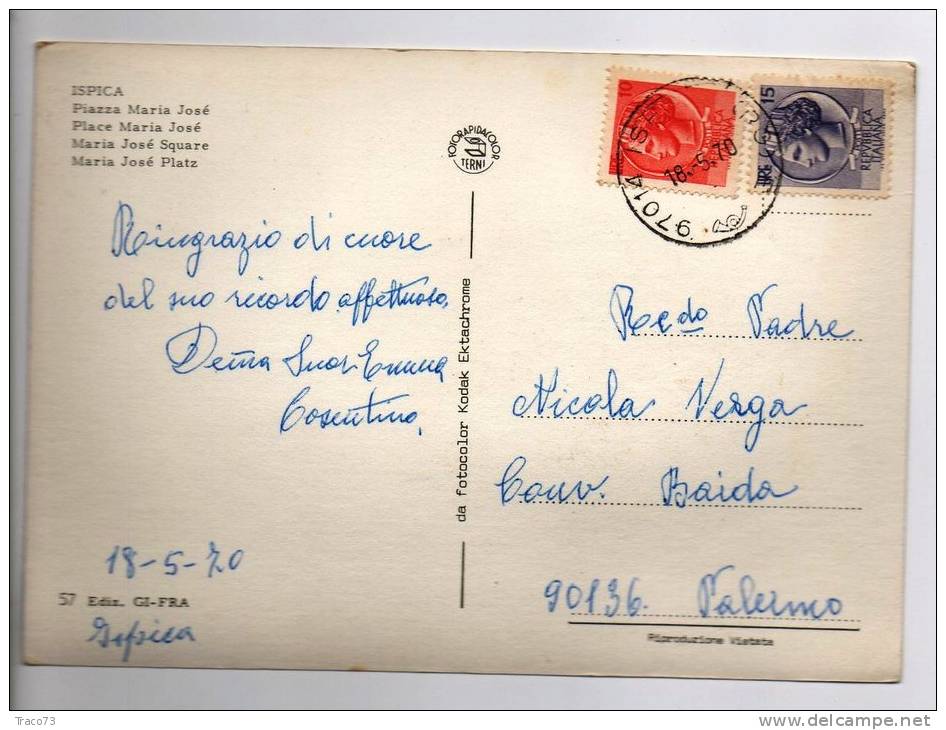 ISPICA
Piazza Maria José
Place Maria José
Maria José Square
Maria José Platz
FOTORAPIDACOLOR
TERNI
10
15
LIRE
REPVBBLICA
ITALIANA
97014
18.-5.70
Ringrazio di cuore
del suo ricordo affettuoso.
Suor Emma
Cosentino,
18-5-70
57 Ediz. GI-FRA
Ispica
da fotocolor Kodak Ektachrome
Re.do Padre
Nicola Verga
Conv. Baida
90136. Palermo
Riproduzione Vietata
Traco73
www.delcampe.net